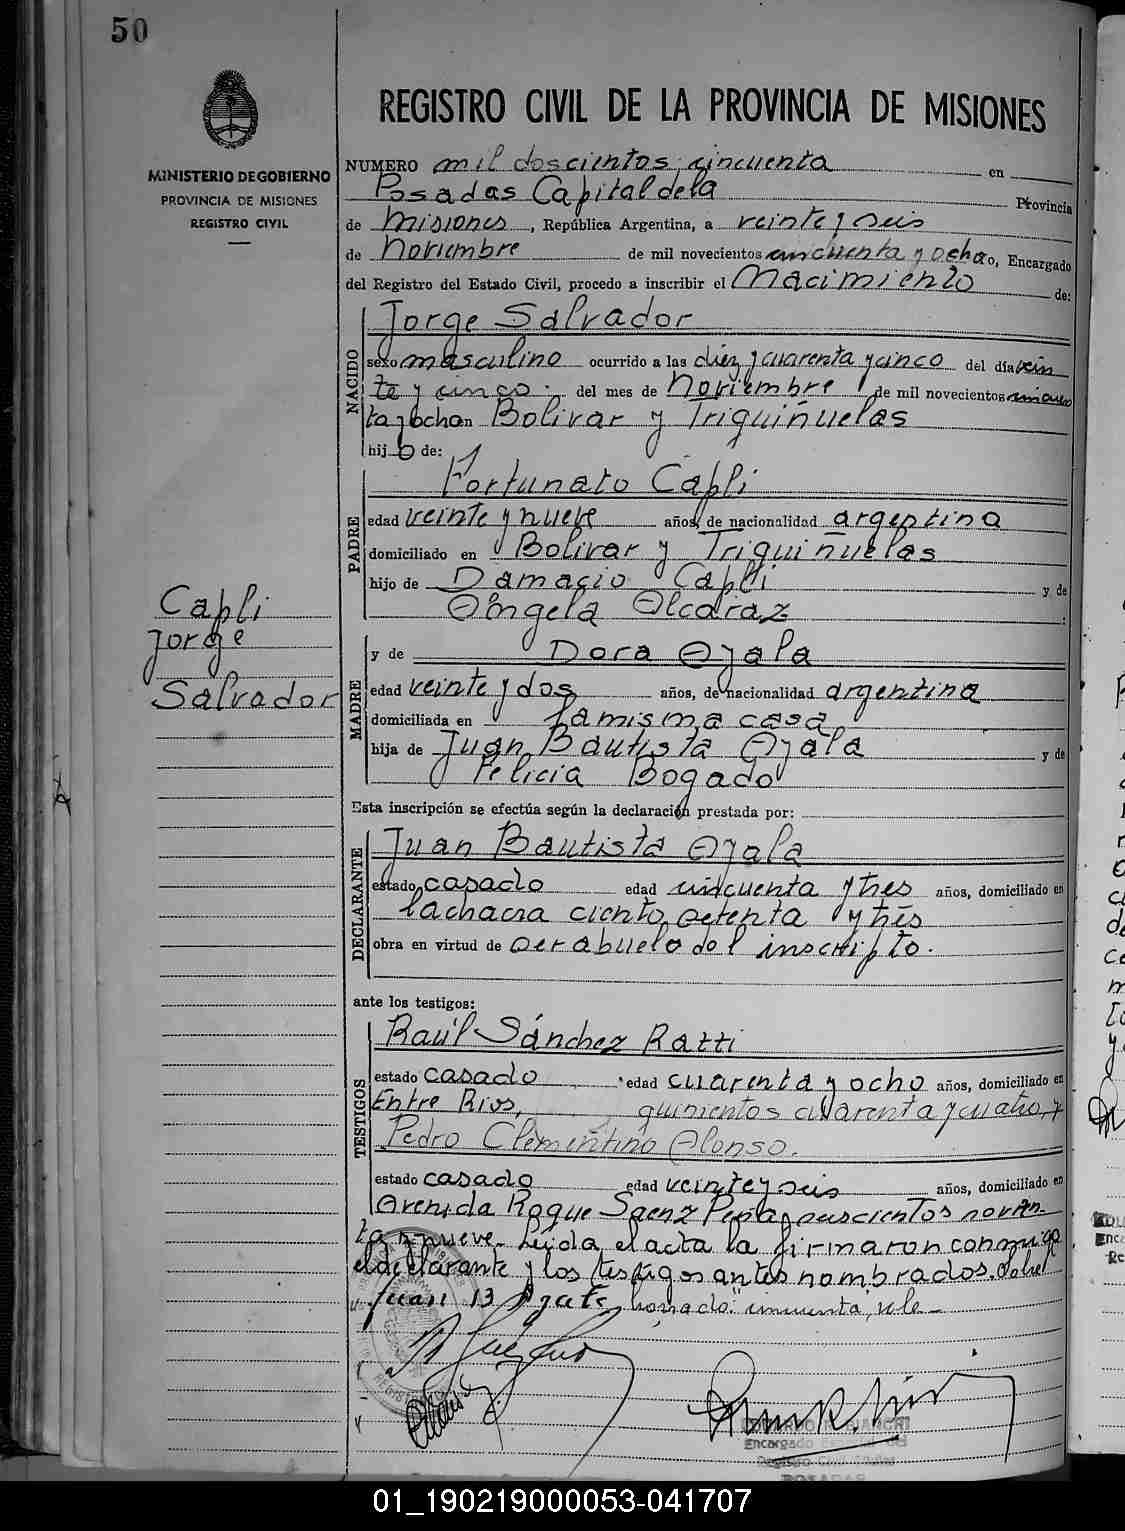 50
MINISTERIO DE GOBIERNO
PROVINCIA DE MISIONES
REGISTRO CIVIL
Capli
Jorge
Salvador
REGISTRO CIVIL DE LA PROVINCIA DE MISIONES
NUMERO mil doscientos cincuenta en
Posadas Capital de la Provincia
de Misiones, República Argentina, a veinte y seis
de Noviembre de mil novecientos cincuenta y ocho, Encargado
del Registro del Estado Civil, procedo a inscribir el Nacimiento de:
NACIDO
Jorge Salvador
sexo masculino ocurrido a las diez y cuarenta y cinco del día vein
te y cinco del mes de Noviembre de mil novecientos cincuen
ta y ocho en Bolivar y Triquiñuelas
hijo de:
PADRE
Fortunato Capli
edad veinte y nueve años, de nacionalidad argentina
domiciliado en Bolivar y Triquiñuelas
hijo de Damacio Capli y de
Angela Alcaraz
MADRE
y de Dora Ayala
edad veinte y dos años, de nacionalidad argentina
domiciliada en la misma casa
hija de Juan Bautista Ayala y de
Felicia Bogado
Esta inscripción se efectúa según la declaración prestada por:
DECLARANTE
Juan Bautista Ayala
estado casado edad cincuenta y tres años, domiciliado en
la chacra ciento setenta y tres
obra en virtud de ser abuelo del inscripto.
ante los testigos:
TESTIGOS
Raúl Sánchez Ratti
estado casado edad cuarenta y ocho años, domiciliado en
Entre Rios, quinientos cuarenta y cuatro, y
Pedro Clementino Alonso.
estado casado edad veinte y seis años, domiciliado en
Avenida Roque Saenz Peña noven-
ta y nueve. Leida el acta la firmaron conmigo
el declarante y los testigos antes nombrados. Sobre
borrado: "cincuenta", vale.-
Juan B Ayala
Encargado
Registro Civil
POSADAS
01_190219000053-041707